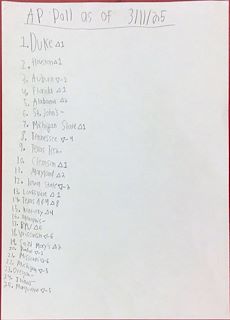 AP Poll as of 3/11/25
1. Duke △1
2. Houston △1
3. Auburn ▽-2
4. Florida △1
5. Alabama △2
6. St. John's -
7. Michigan State △1
8. Tennessee ▽-4
9. Texas Tech
10. Clemson △1
11. Maryland △2
12. Iowa State ▽-2
13. Louisville △1
14. Texas A&M △8
15. Kentucky △4
16. Memphis -
17. BYU △6
18. Wisconsin ▽-6
19. Saint Mary's
20. Purdue
21. Missouri ▽-6
22. Michigan ▽-5
23. Oregon
24. Illinois
25. Marquette ▽-5